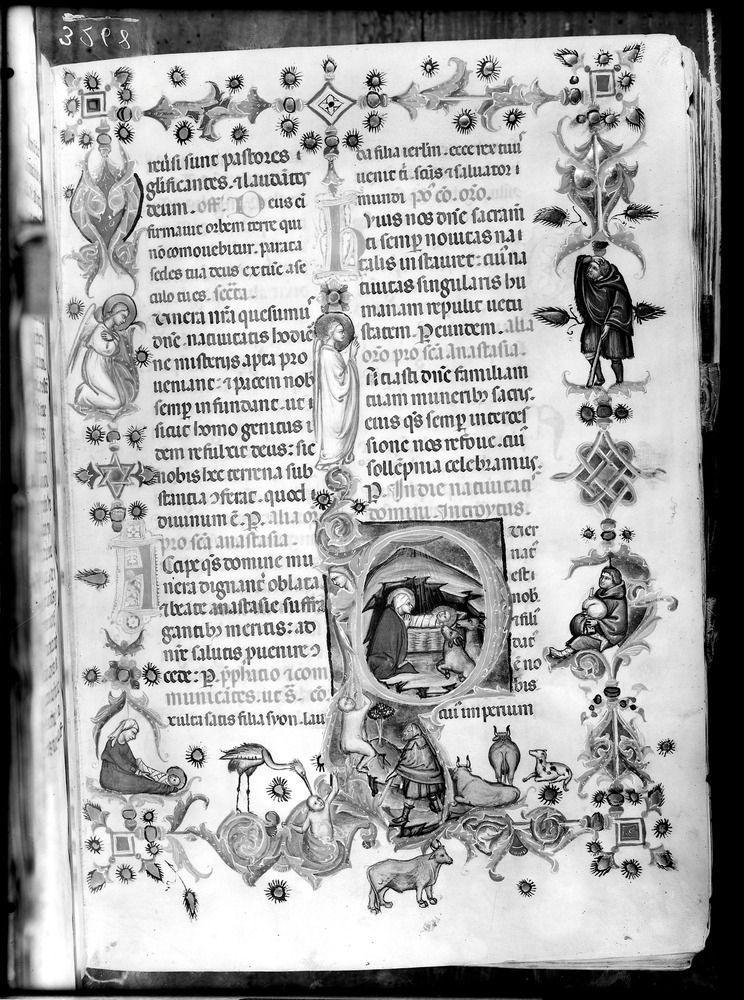 3298
reuſi sunt pastores ⁊
glificantes ⁊ laudātes
deum. off. Deus ei
firmauit orbem terre qui
nō comouebitur. parata
sedes tua deus ex tūc a se
culo tu es. secta.
unera nr̄a quesumus
dn̄e natiuitatis hodie
ne misterijs apta pro
ueniant: ⁊ pacem nob
semp infundant. ut
sicut homo genitus
dem refulxit deus: sic
nobis hec terrena sub
stantia ɔferat. quod
diuinum ē. P. alia or
pro sc̄a anastasia.
Accipe qs domine mu
nera dignant oblata
⁊ beate anastasie suffra
gantibꝫ meritis: ad
nr̄e salutis puenire ɔ
cede: P. pphatio ⁊ com
municātes. ut s̄. cō
exulta satis filia syon. lau
da filia ierlm. ecce rex tuus
uenit t. scūs ⁊ saluator
mundi. po cō. oro.
Huius nos dn̄e sacram
ti semp nouitas na
talis instauret: cui na
tiuitas singularis hu
manam repulit uetu
statem. P eundem. alia
oro pro sc̄a anastasia.
Satiasti dn̄e familiam
tuam muneribꝫ sacris.
eius qs semp interces
sione nos refoue. cui
sollēpnia celebramus.
P. In die natiuitati
domini. Introytus.
Puer
nat
est
nob.
⁊ fili
dat
ē no
bis
cui imperium